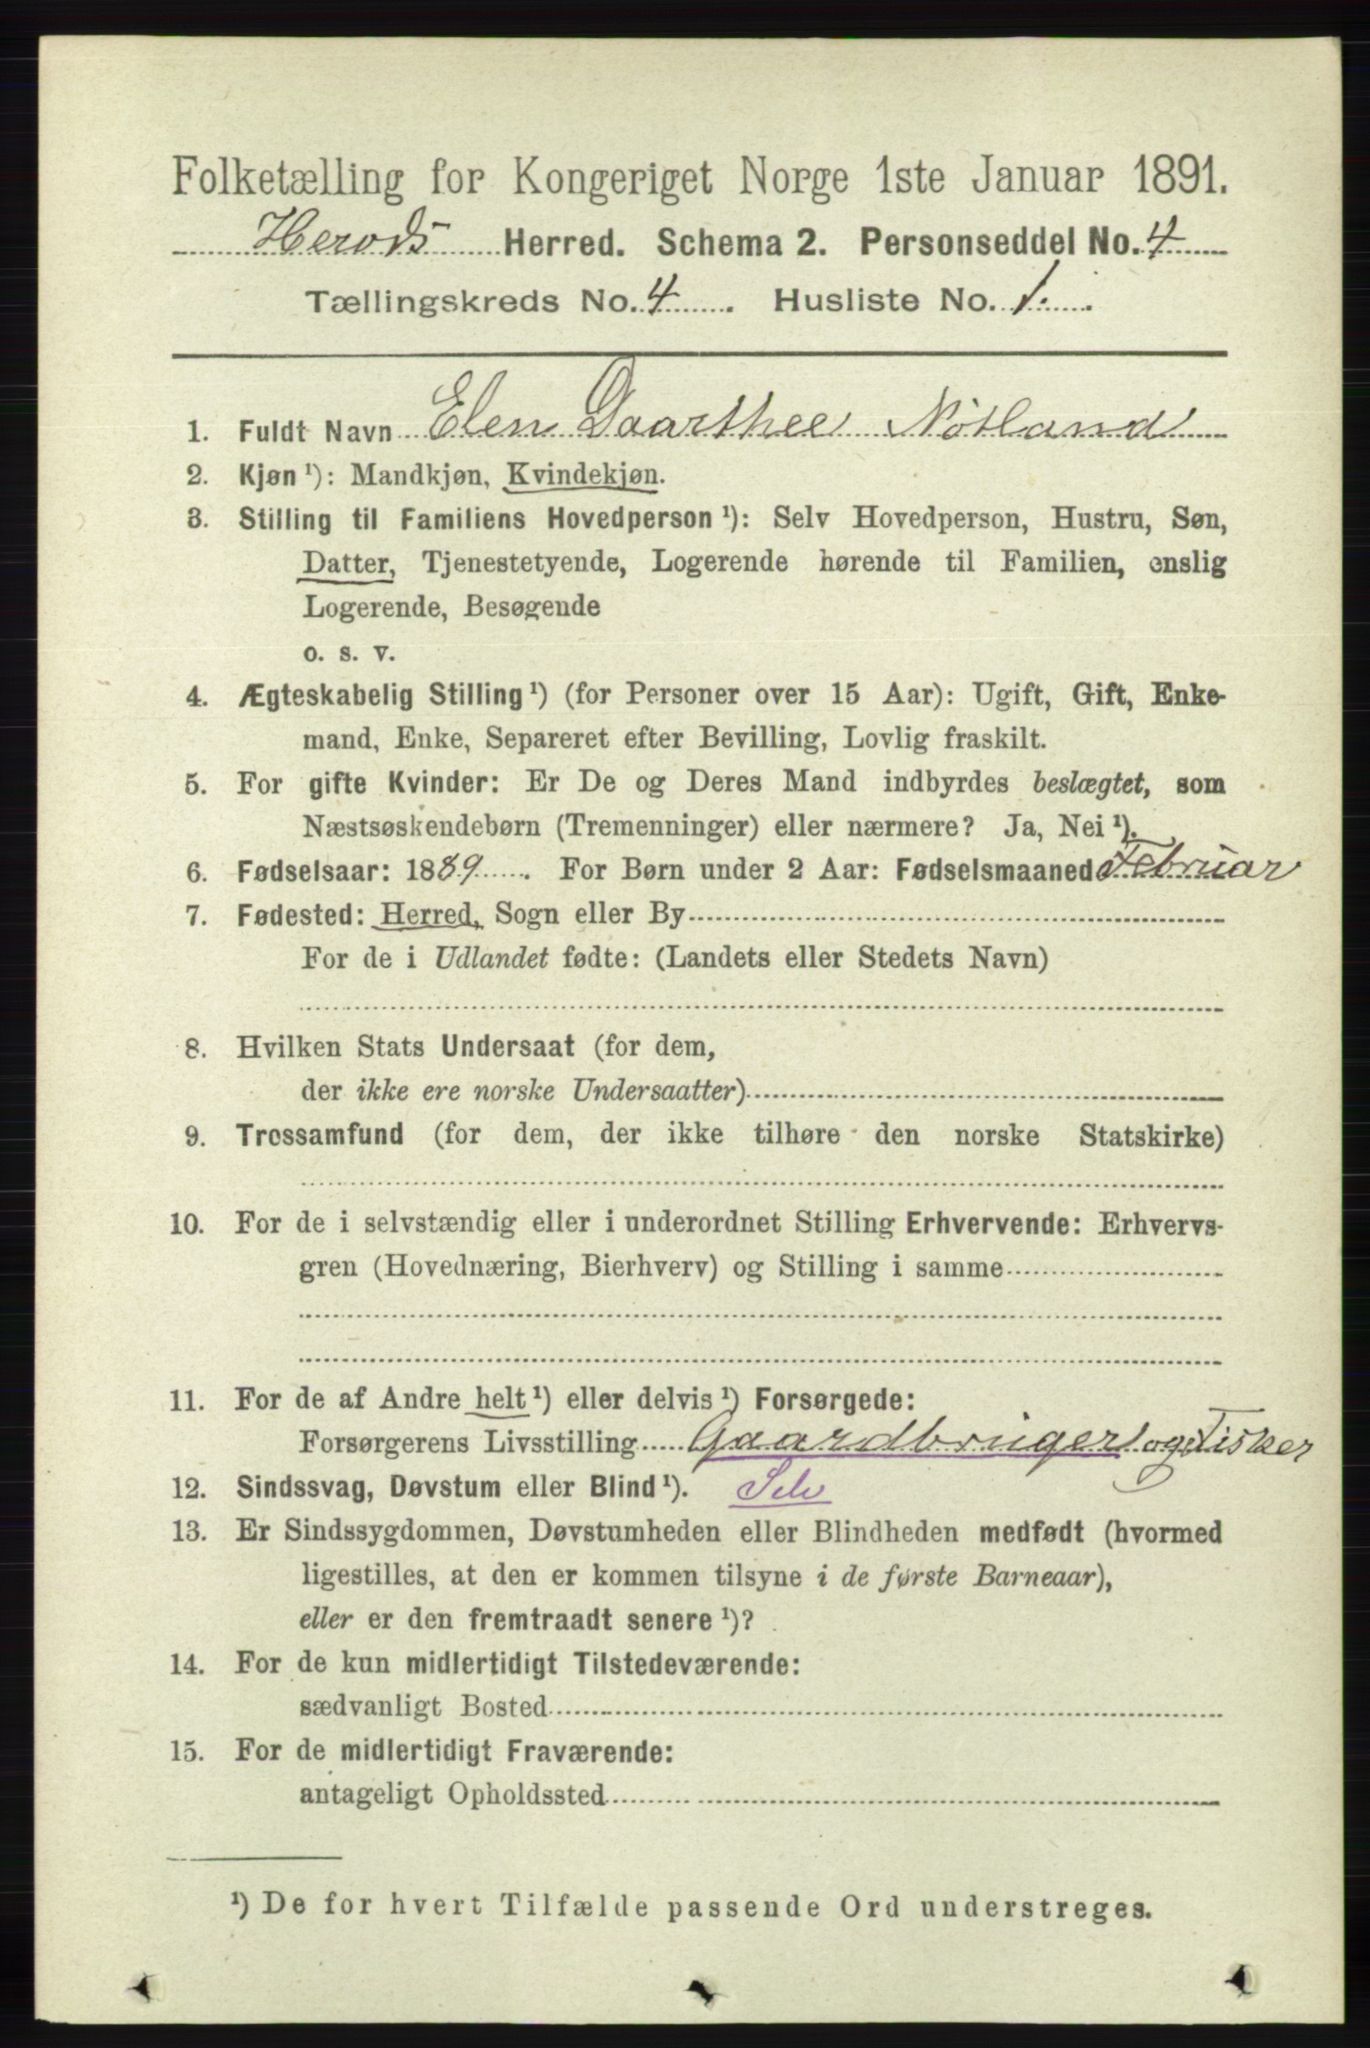 Folketælling for Kongeriget Norge 1ste Januar 1891.
Herods Herred. Schema 2. Personseddel No. 4
Tællingskreds No. 4. Husliste No. 1.
1. Fuldt Navn Elen Daarthee Nötland
2. Kjøn ¹): Mandkjøn, Kvindekjøn.
3. Stilling til Familiens Hovedperson ¹): Selv Hovedperson, Hustru, Søn,
Datter, Tjenestetyende, Logerende hørende til Familien, enslig
Logerende, Besøgende
o. s. v.
4. Ægteskabelig Stilling ¹) (for Personer over 15 Aar): Ugift, Gift, Enke-
mand, Enke, Separeret efter Bevilling, Lovlig fraskilt.
5. For gifte Kvinder: Er De og Deres Mand indbyrdes beslægtet, som
Næstsøskendebørn (Tremenninger) eller nærmere? Ja, Nei ¹).
6. Fødselsaar: 1889. For Børn under 2 Aar: Fødselsmaaned Februar
7. Fødested: Herred, Sogn eller By
For de i Udlandet fødte: (Landets eller Stedets Navn)
8. Hvilken Stats Undersaat (for dem,
der ikke ere norske Undersaatter)
9. Trossamfund (for dem, der ikke tilhøre den norske Statskirke)
10. For de i selvstændig eller i underordnet Stilling Erhvervende: Erhvervs-
gren (Hovednæring, Bierhverv) og Stilling i samme
11. For de af Andre helt ¹) eller delvis ¹) Forsørgede:
Forsørgerens Livsstilling Gaardbruger og Fisker
12. Sindssvag, Døvstum eller Blind ¹). Selv
13. Er Sindssygdommen, Døvstumheden eller Blindheden medfødt (hvormed
ligestilles, at den er kommen tilsyne i de første Barneaar),
eller er den fremtraadt senere ¹)?
14. For de kun midlertidigt Tilstedeværende:
sædvanligt Bosted
15. For de midlertidigt Fraværende:
antageligt Opholdssted
¹) De for hvert Tilfælde passende Ord understreges.